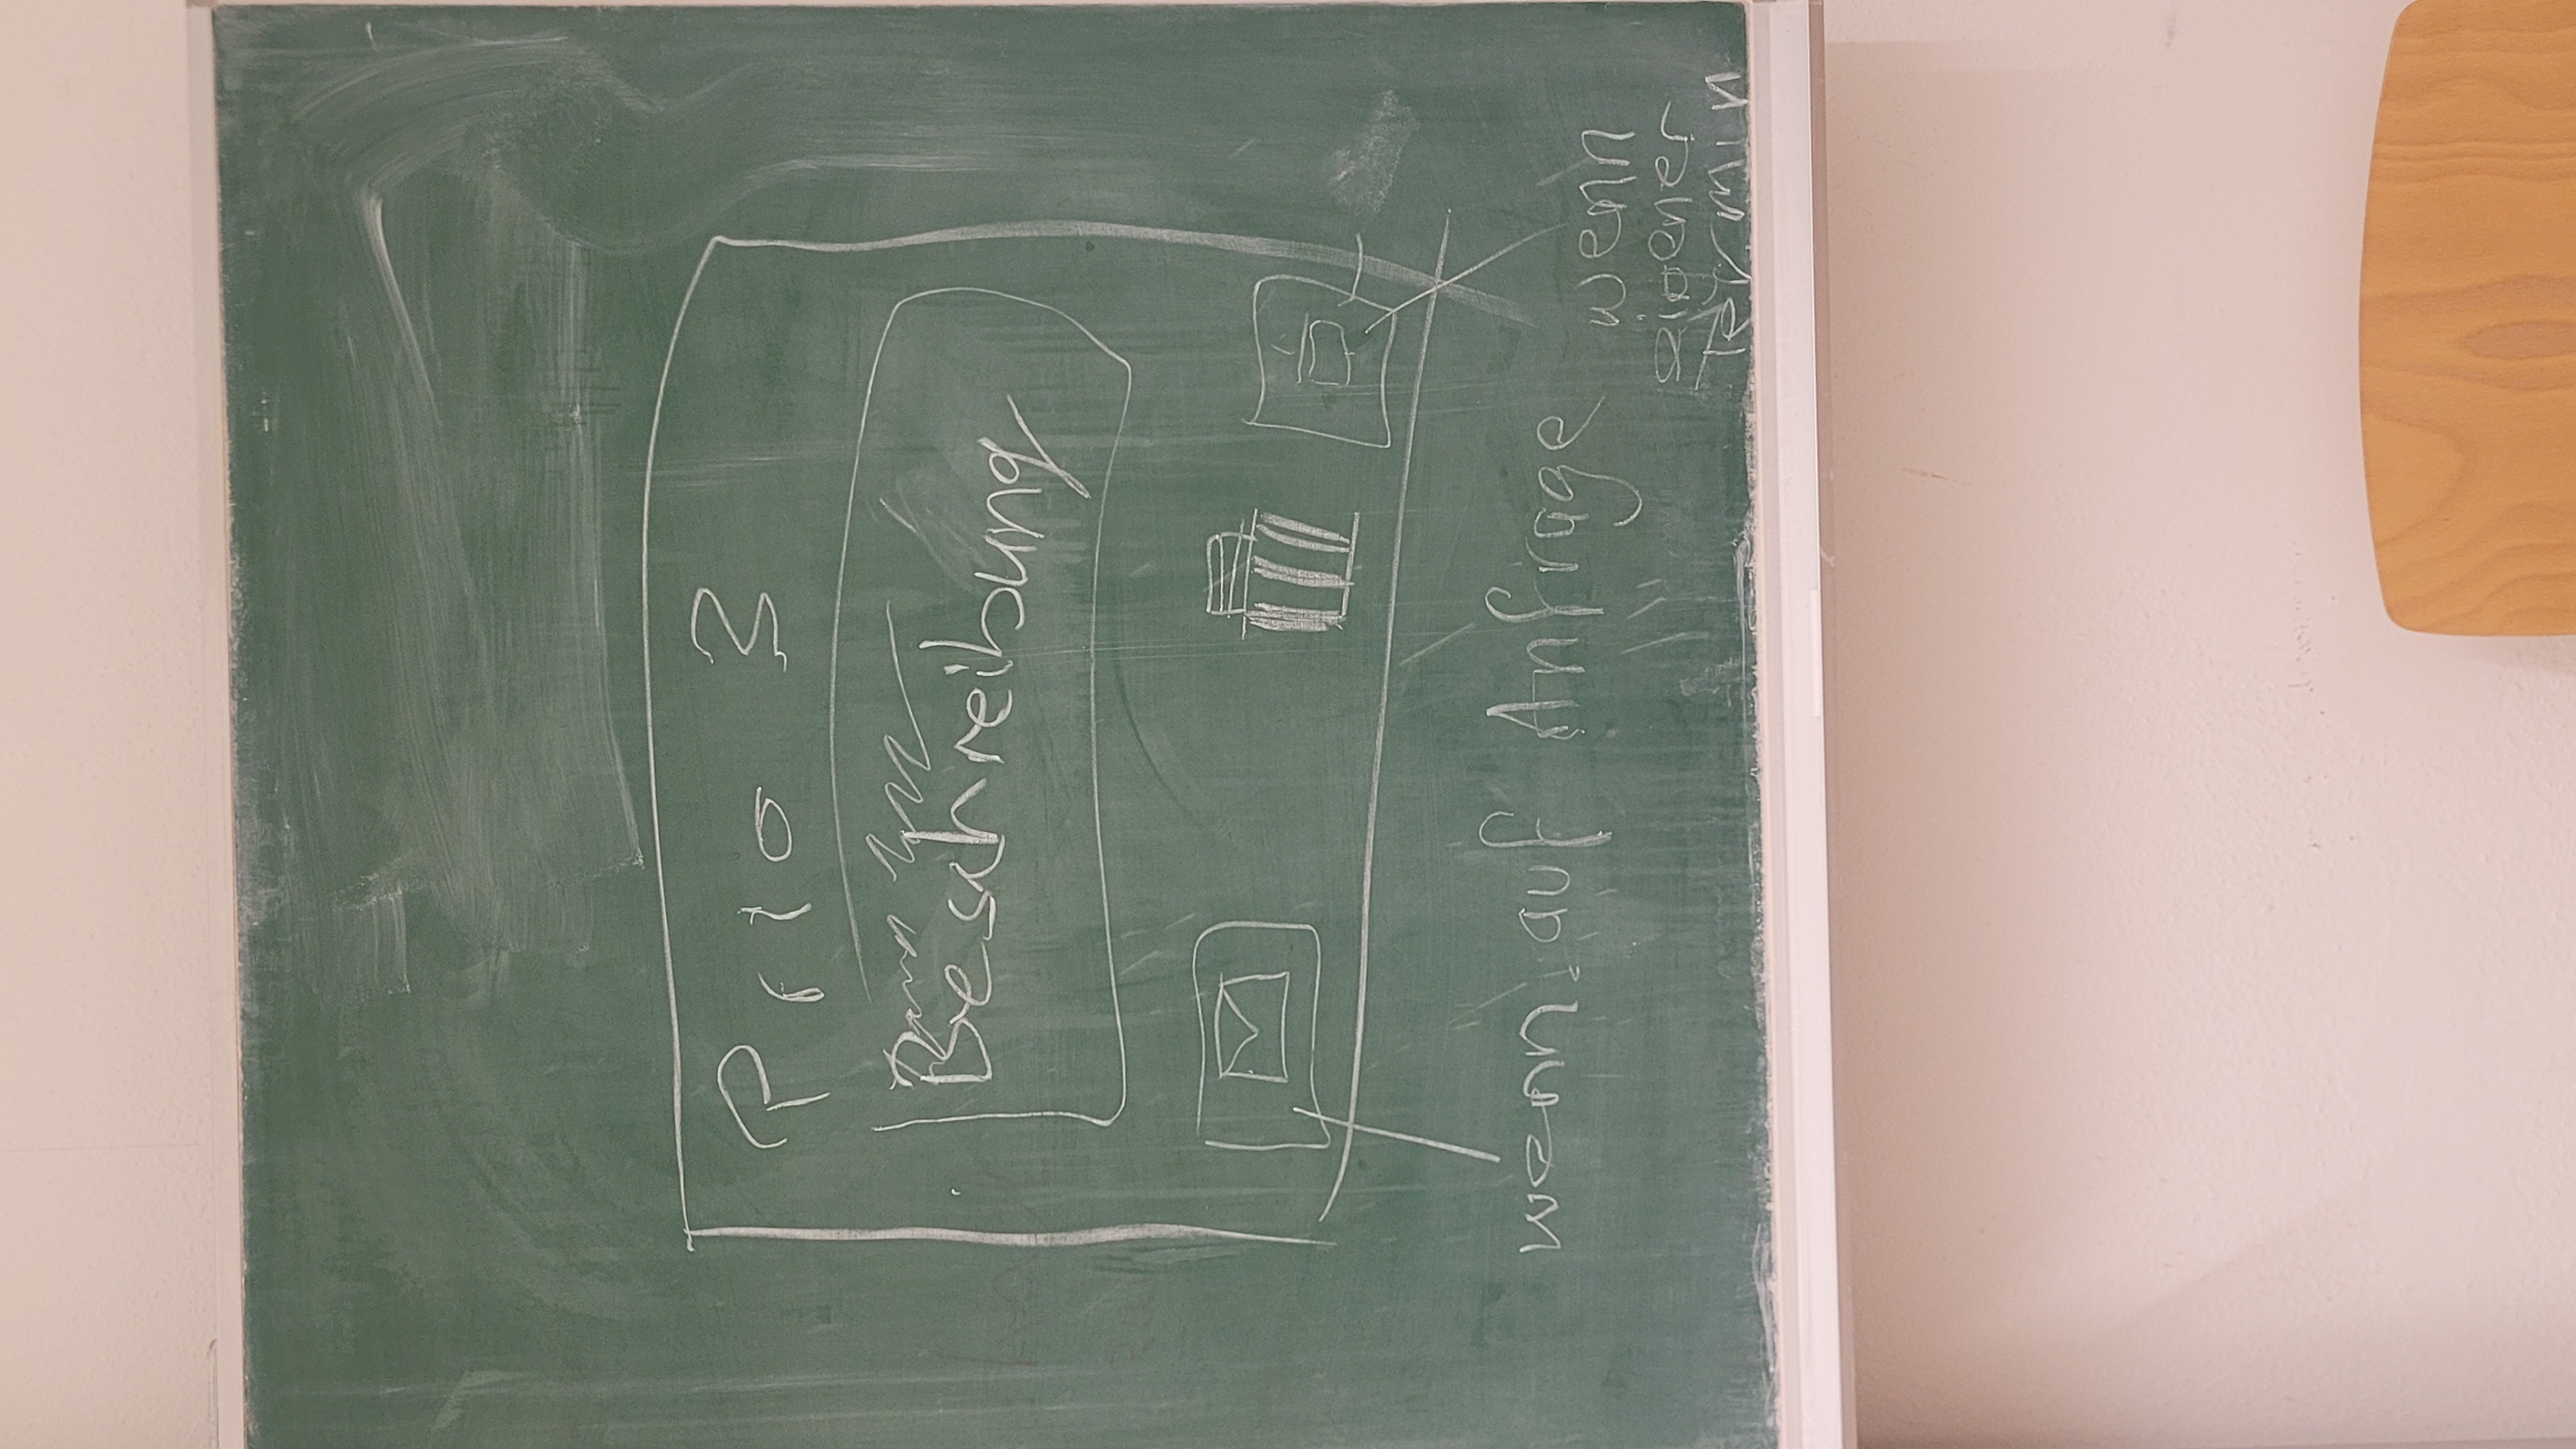 Prio 3
Beschreibung
wenn auf Anfrage
wenn
eigener
Termin